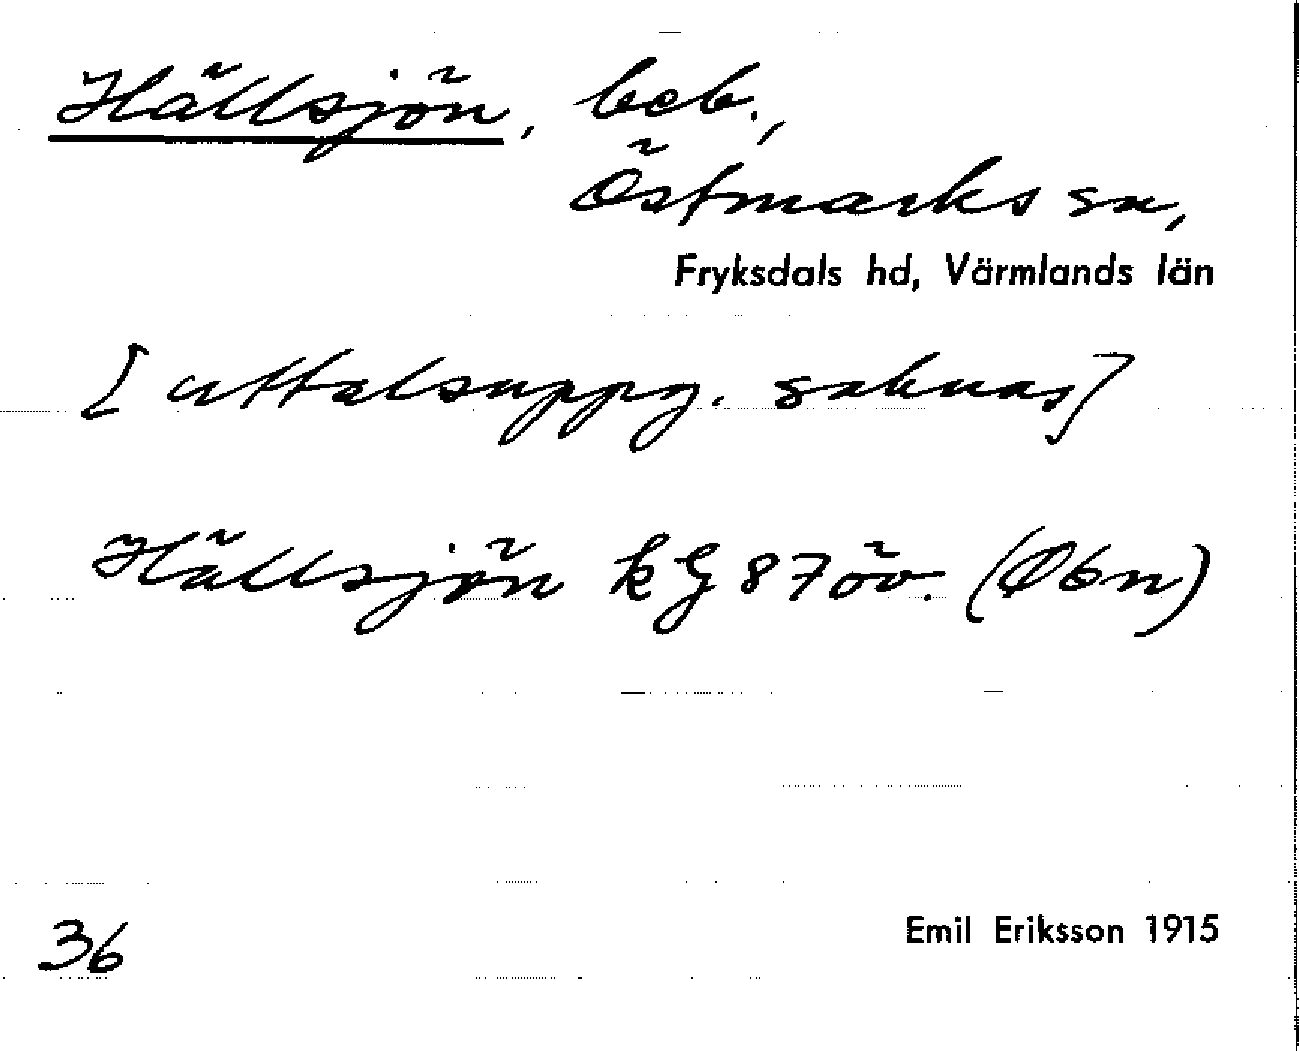 Hällsjön, beb.,
Östmarks sn,
Fryksdals hd, Värmlands län
[uttalsuppg. saknas]
Hällsjön kG 87 öv. (Obn)
36
Emil Eriksson 1915